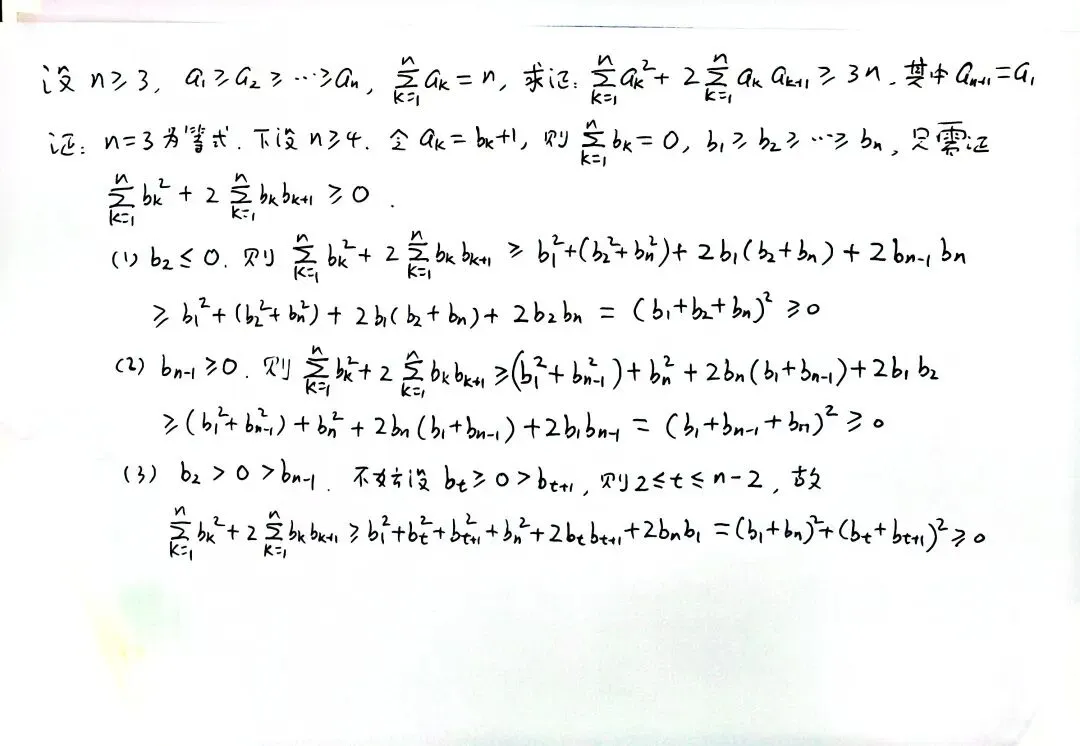 设 n≥3, a₁≥a₂≥…≥aₙ, ∑_{k=1}^{n} aₖ = n, 求证: ∑_{k=1}^{n} aₖ² + 2∑_{k=1}^{n} aₖ aₖ₊₁ ≥ 3n. 其中 aₙ₊₁=a₁
证: n=3 为等式. 下设 n≥4. 令 aₖ = bₖ+1, 则 ∑_{k=1}^{n} bₖ = 0, b₁≥b₂≥…≥bₙ, 只需证
∑_{k=1}^{n} bₖ² + 2∑_{k=1}^{n} bₖbₖ₊₁ ≥0.
(1) b₂≤0. 则 ∑_{k=1}^{n} bₖ² + 2∑_{k=1}^{n} bₖbₖ₊₁ ≥ b₁²+(b₂²+bₙ²)+2b₁(b₂+bₙ)+2bₙ₋₁bₙ
≥ b₁²+(b₂²+bₙ²)+2b₁(b₂+bₙ)+2b₂bₙ = (b₁+b₂+bₙ)² ≥0
(2) bₙ₋₁≥0. 则 ∑_{k=1}^{n} bₖ²+2∑_{k=1}^{n} bₖbₖ₊₁ ≥(b₁²+bₙ₋₁²)+bₙ²+2bₙ(b₁+bₙ₋₁)+2b₁b₂
≥(b₁²+bₙ₋₁²)+bₙ²+2bₙ(b₁+bₙ₋₁)+2b₁bₙ₋₁ = (b₁+bₙ₋₁+bₙ)²≥0
(3) b₂>0>bₙ₋₁. 不妨设 b_t≥0>b_{t+1}, 则 2≤t≤n-2, 故
∑_{k=1}^{n} bₖ²+2∑_{k=1}^{n} bₖbₖ₊₁ ≥b₁²+b_t²+b_{t+1}²+bₙ²+2b_tb_{t+1}+2bₙb₁ =(b₁+bₙ)²+(b_t+b_{t+1})²≥0